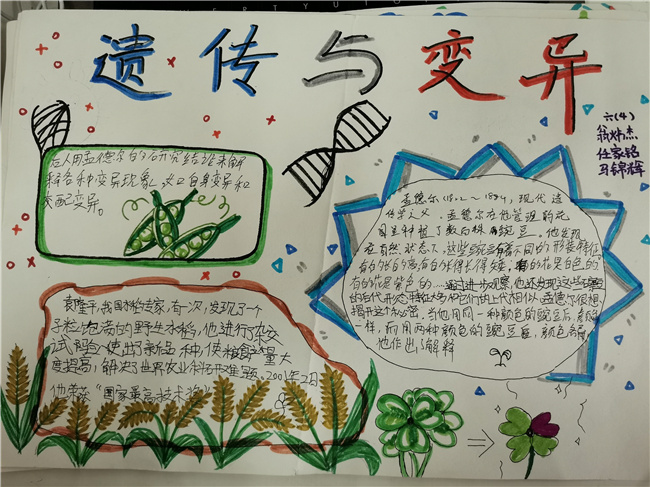 遗传与变异
六(4)
翁炜杰
任家铭
马锦辉
后人用孟德尔的研究结论来解
释各种变异现象,如自身变异和
交配变异。
孟德尔(1822~1884),现代遗
传学之父,孟德尔在他管理的花
园里种植了数百株豌豆。他发现
在自然状态下,这些豌豆有着不同的形装特征。
有的长的高,有的长得长得矮;有的花是白色的
有的花是紫色的……通过进步观察,他还发现这些豌豆
的后代形态特征大多和它们的上代相似。孟德尔很想
揭开这个奥密。当他用同一种颜色的豌豆后,颜色
一样,而用两种颜色的豌豆
他作出了解释
袁隆平,我国水稻专家,有一次,发现了一个
子粒饱满的野生水稻,他进行杂交
试验,使出了新品种,使粮食产量大
度提高,解决了世界农业科研难题。2001年2月
他荣获“国家最高技术奖”